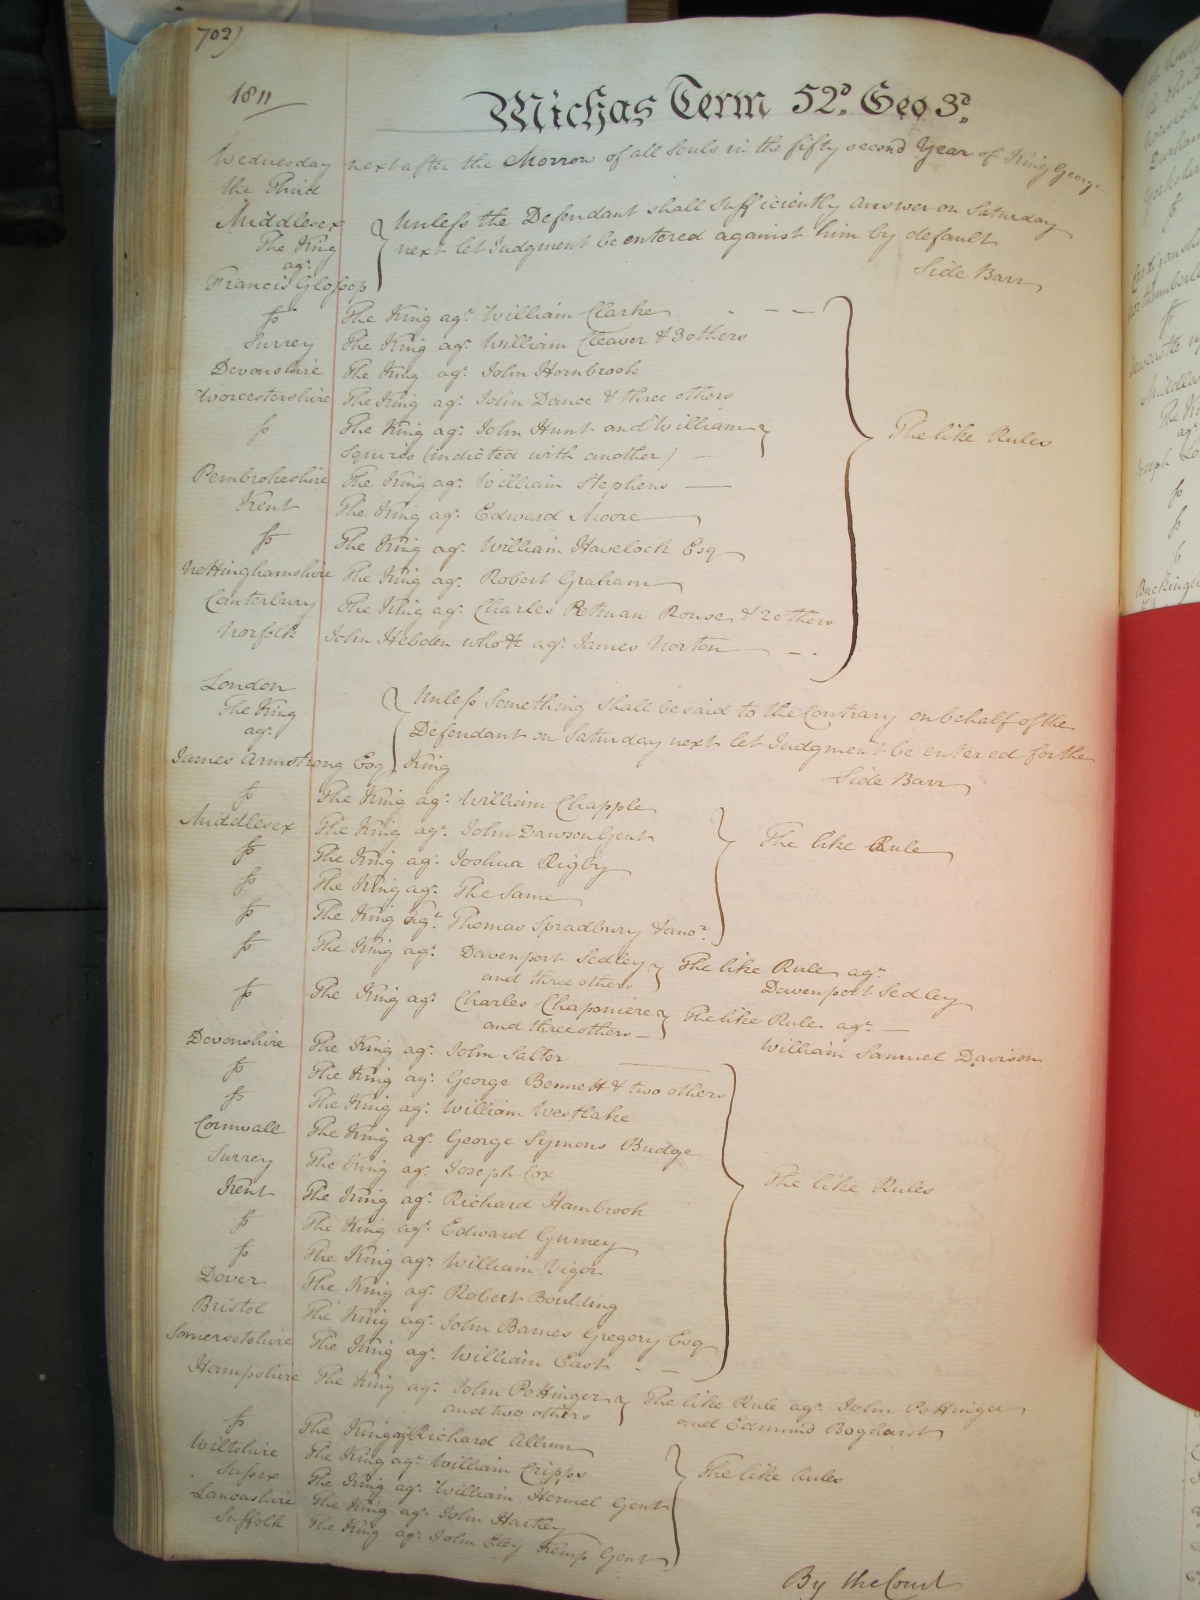 702)
1811
Michas Term 52d. Geo 3d.
Wednesday next after the Morrow of all Souls in the fifty second Year of King George
the Third
Middlesex
The King
agt.
Francis Glossop
Unless the Defendant shall Sufficiently answer on Saturday
next let Judgment be entered against him by default
Side Barr
So The King agt. William Clarke
Surrey The King agt. William Cleaver & 3 others
Devonshire The King agt. John Hornbrook
Worcestershire The King agt. John Dance & three others
So The King agt. John Hunt and William
Squires (indicted with another)
Pembrokeshire The King agt. William Stephens
Kent The King agt. Edward Moore
So The King agt. William Havelock Esq
Nottinghamshire The King agt. Robert Graham
Canterbury The King agt. Charles Rouse & 2 others
Norfolk John Hebden who &c agt. James Norton
The like Rules
London
The King
agt.
James Armstrong Esq
Unless Something shall be said to the Contrary on behalf of the
Defendant on Saturday next let Judgment be entered for the
King
Side Barr
So The King agt. William Chapple
Middlesex The King agt. John Dawson Gent
So The King agt. Joshua Rigby
So The King agt. The Same
So The King agt. Thomas Spradbury & anor.
The like Rule
So The King agt. Davenport Sedley
and three others
The like Rule agt.
Davenport Sedley
So The King agt. Charles Chaponiere
and three others
The like Rule agt.
William Samuel Davison
Devonshire The King agt. John Salter
So The King agt. George Bennett & two others
So The King agt. William Westlake
Cornwall The King agt. George Symons Budge
Surrey The King agt. Joseph Cox
Kent The King agt. Richard Hambrook
So The King agt. Edward Gurney
So The King agt. William Vigor
Dover The King agt. Robert Boulding
Bristol The King agt. John Barnes Gregory Esq
Somersetshire The King agt. William East
The like Rules
Hampshire The King agt. John Pottinger
and two others
The like Rule agt. John Pottinger
and Edmund Bogharst
So The King agt Richard Allum
Wiltshire The King agt. William Cripps
Sussex The King agt. William Hermel Gent
Lancashire The King agt. John Hartley
Suffolk The King agt. John Eley Kemp Gent
The like Rules
By the Court